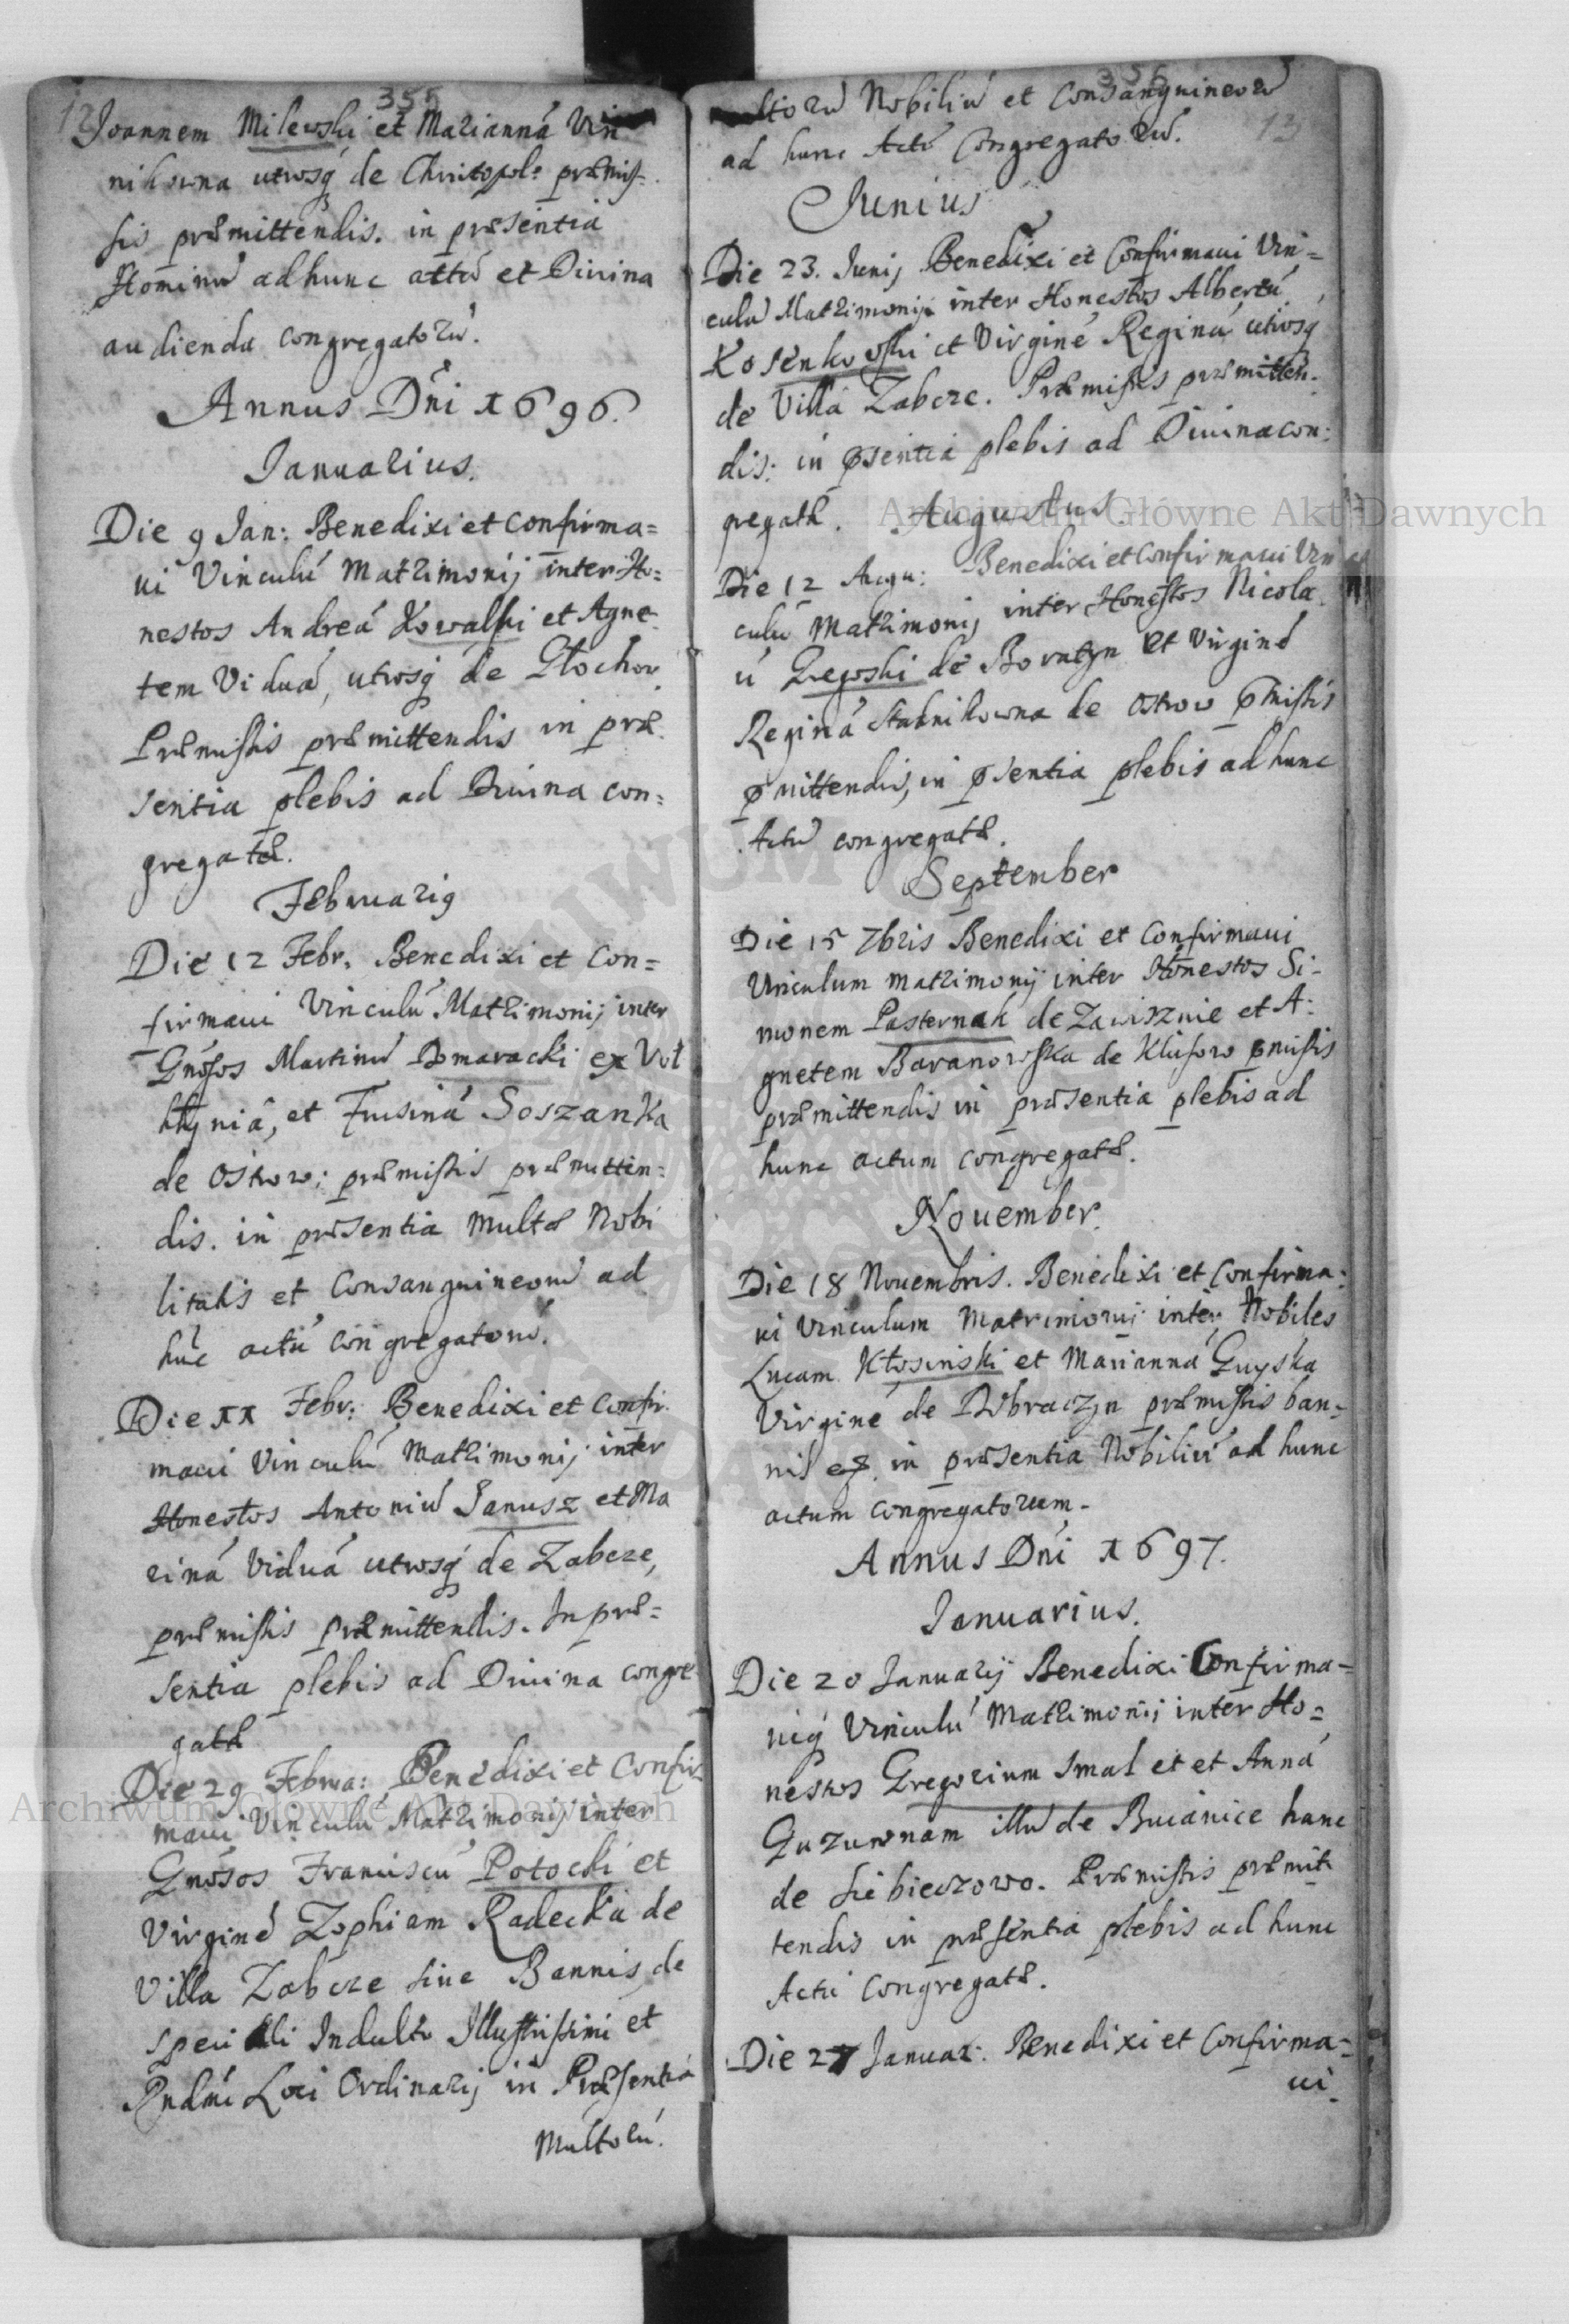 12 355
Joannem Milewski et Mariannã Vin
nikowna utrosq̃ de Christopol: præmis-
sis præmittendis. in præsentia
Hominũ ad hunc actũ et Divina
audienda congregatorũ.
Annus Dñi 1696.
Januarius.
Die 9 Jan: Benedixi et confirma=
ui Vinculũ Matrimonij inter Ho=
nestos Andreã Kowalski et Agne-
tem Viduã, utrosq̃ de
Præmissis præmittendis in præ-
sentia plebis ad Diuina con=
gregatæ.
Februarig
Die 12 Febr. Benedixi et Con=
firmaui Vinculũ Matrimonij inter
Gnosos Martinũ Domaracki ex Vol
hyniã, et Fusinã Soszanka
de Ostrow; præmissis præmitten=
dis. in præsentia Multæ Nobi
litatis et Consanguineorũ ad
hũc actũ congregatorũ.
Die XX Febr: Benedixi et Confir-
maui Vinculũ Matrimonij inter
Honestos Antoniũ Janusz et Ma
rinã Viduã utrosq̃ de Zabcze,
præmissis præmittendis. In præ=
sentia plebis ad Diuina congre
gatæ
Die 29 Februa: Benedixi et Confir
maui Vinculũ Matrimonij inter
Gnosos Franciscũ Potocki et
Virginẽ Zophiam Radecka de
Villa Zabcze sine Bannis, de
speciali Indulto Illustrissimi et
Rndmi Loci Ordinarij in Præsentia
Multorũ.
356 13
ultorũ Nobiliũ et Consanguineorũ
ad hunc Actũ Congregatorũ.
Junius
Die 23. Junij Benedixi et Confirmaui Vin=
culũ Matrimonij inter Honestos Albertũ
Kosenkowski et Virginẽ Reginã utrosq̃
de Villa Zabcze. Præmissis præmitten-
dis: in p̃sentia plebis ad Diuina con:
gregatæ. Augustus
Die 12 Augu: Benedixi et Confirmaui Vin
culũ Matrimonij inter Honestos Nicola
ũ de Boratyn et Virginẽ
Reginã Stadnikowna de Ostrow p̃missis
p̃mittendis, in p̃sentia plebis ad hunc
Actũ congregatæ.
September
Die 15 7bris Benedixi et Confirmaui
Vinculum matrimonij inter Honestos Si-
monem Pasternak de Zawisznie et A:
gnetem Baranowska de Klusow p̃missis
præmittendis in præsentia plebis ad
hunc actum congregatæ.
Nouember.
Die 18 Nouembris. Benedixi et Confirma:
ui Vinculum Matrimonij inter Nobiles
Lucam Kłosinski et Mariannã Guyska
Virginẽ de Dobraczyn præmissis ban-
nis in præsentia Nobiliũ ad hunc
actum congregatorum.
Annus Dñi 1697.
Januarius.
Die 20 Januarij Benedixi Confirma-
uiq̃ Vinculũ Matrimonij inter Ho=
nestos Gregorium Smal et et Annã
Guzuwnam illũ de Buianice hanc
de Siebieczowo. Præmissis præmit
tendis in præsentia plebis ad hunc
Actũ Congregatæ.
Die 27 Januar: Benedixi et Confirma=
ui
Archiwum Główne Akt Dawnych
Archiwum Główne Akt Dawnych